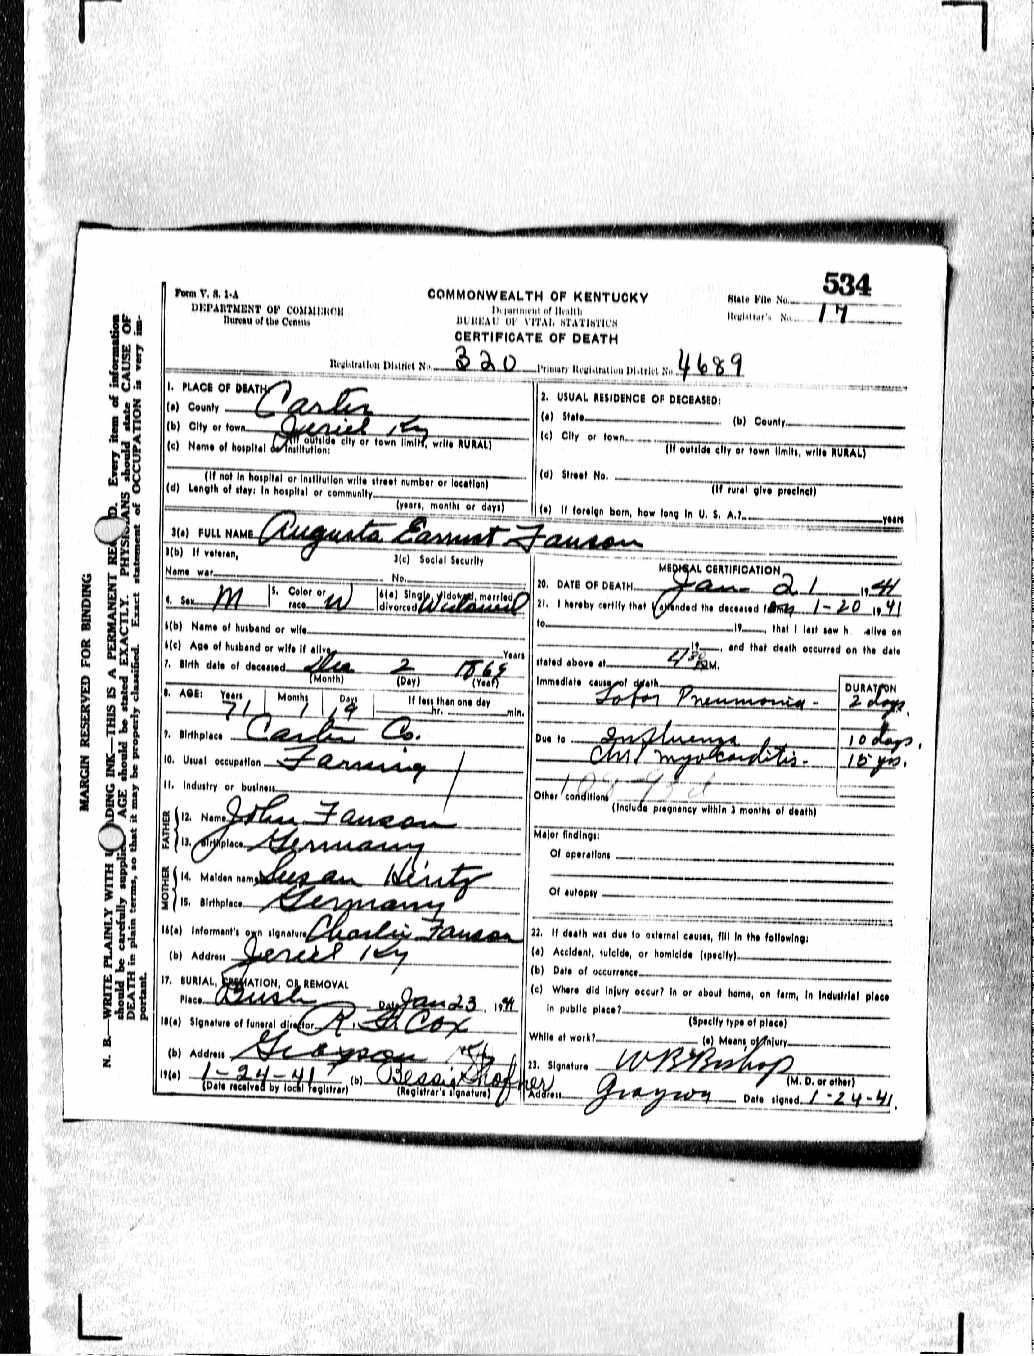 534
Form V. S. 1-A
DEPARTMENT OF COMMERCE
Bureau of the Census
COMMONWEALTH OF KENTUCKY
Department of Health
BUREAU OF VITAL STATISTICS
CERTIFICATE OF DEATH
State File No.
Registrar's No. 17
Registration District No. 320 Primary Registration District No. 4689
MARGIN RESERVED FOR BINDING
N. B.—WRITE PLAINLY WITH ADING INK—THIS IS A PERMANENT RE D. Every item of information
should be carefully suppli AGE should be stated EXACTLY. PHYSICIANS should state CAUSE OF
DEATH in plain terms, so that it may be properly classified. Exact statement of OCCUPATION is very im-
portant.
1. PLACE OF DEATH
(a) County Carter
(b) City or town Jeriel Ky
(If outside city or town limits, write RURAL)
(c) Name of hospital or institution:
(If not in hospital or institution write street number or location)
(d) Length of stay: In hospital or community
(years, months or days)
2. USUAL RESIDENCE OF DECEASED:
(a) State (b) County
(c) City or town
(If outside city or town limits, write RURAL)
(d) Street No.
(If rural give precinct)
(e) If foreign born, how long in U. S. A.? years
3(a) FULL NAME Augusta Earnust Fauson
3(b) If veteran,
Name war
3(c) Social Security
No.
4. Sex M
5. Color or
race W
6(a) Single, widowed, married,
divorced Widowed
6(b) Name of husband or wife
6(c) Age of husband or wife if alive Years
7. Birth date of deceased Dec 2 1869
(Month) (Day) (Year)
8. AGE: Years Months Days If less than one day
71 1 19 hr. min.
9. Birthplace Carter Co.
10. Usual occupation Farming
11. Industry or business
FATHER
12. Name John Fauson
13. Birthplace Germany
MOTHER
14. Maiden name Susan Hintz
15. Birthplace Germany
16(a) Informant's own signature Charlie Fauson
(b) Address Jeriel Ky
17. BURIAL, CREMATION, OR REMOVAL
Place Bush Date Jan 23, 1941
18(a) Signature of funeral director R. H Cox
(b) Address Grayson Ky
19(a) 1-24-41 (b) Bessie Shofner
(Date received by local registrar) (Registrar's signature)
MEDICAL CERTIFICATION
20. DATE OF DEATH Jan 21 1941
21. I hereby certify that I attended the deceased from 1-20 1941
to 19 , that I last saw h alive on
19 , and that death occurred on the date
stated above at 4 30 P.M.
Immediate cause of death
DURATION
Lobar Pneumonia - 2 days.
Due to Influenza 10 days.
Chr myocarditis. 15 yrs.
108-93d
Other conditions
(Include pregnancy within 3 months of death)
Major findings:
Of operations
Of autopsy
22. If death was due to external causes, fill in the following:
(a) Accident, suicide, or homicide (specify)
(b) Date of occurrence
(c) Where did injury occur? In or about home, on farm, in industrial place
in public place?
(Specify type of place)
While at work? (e) Means of injury
23. Signature W B Bishop
(M. D. or other)
Address Grayson Date signed 1-24-41.